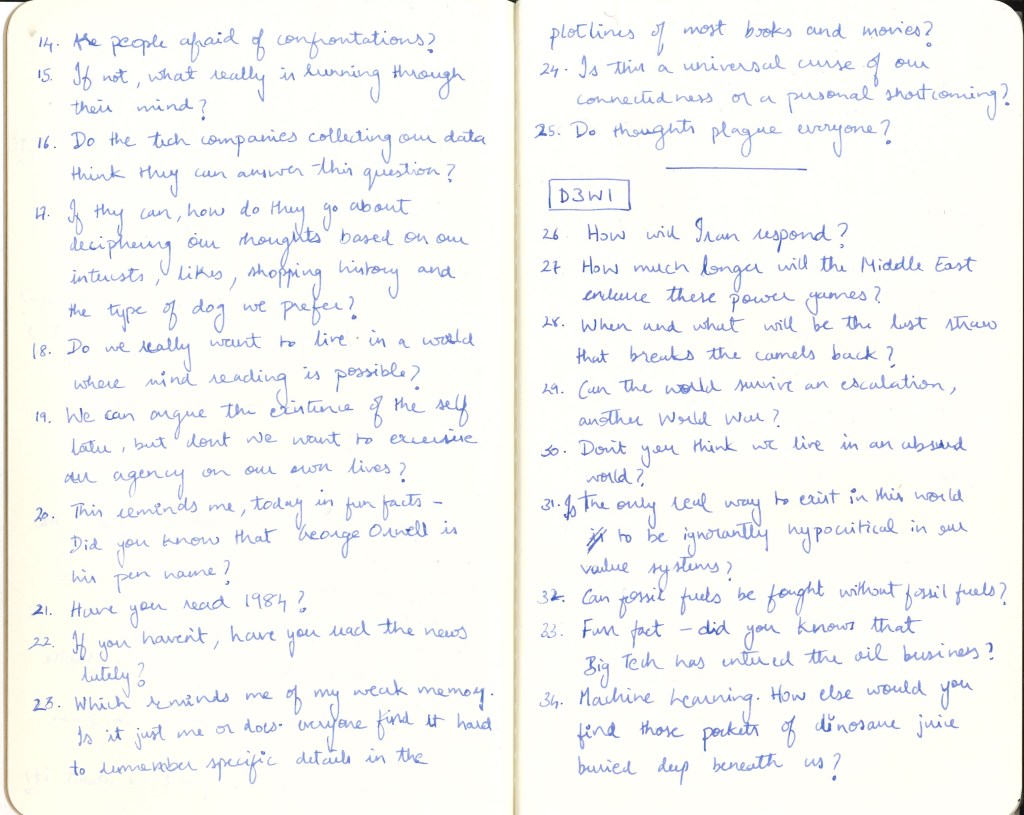 14. Are people afraid of confrontations?
15. If not, what really is running through
their mind?
16. Do the tech companies collecting our data
think they can answer this question?
17. If they can, how do they go about
deciphering our thoughts based on our
interests, likes, shopping history and
the type of dog we prefer?
18. Do we really want to live in a world
where mind reading is possible?
19. We can argue the existence of the self
later, but dont we want to exercise
our agency on our own lives?
20. This reminds me, today in fun facts -
Did you know that George Orwell is
his pen name?
21. Have you read 1984?
22. If you haven't, have you read the news
lately?
23. Which reminds me of my weak memory.
Is it just me or does everyone find it hard
to remember specific details in the
plotlines of most books and movies?
24. Is this a universal curse of our
connectedness or a personal shortcoming?
25. Do thoughts plague everyone?
D3W1
26. How will Iran respond?
27 How much longer will the Middle East
endure these power games?
28. When and what will be the last straw
that breaks the camels back?
29. Can the world survive an escalation,
another World War?
30. Don't you think we live in an absurd
world?
31. Is the only real way to exist in this world
to be ignorantly hypocritical in our
value systems?
32. Can fossil fuels be fought without fossil fuels?
33. Fun fact - did you know that
Big Tech has entered the oil business?
34. Machine Learning. How else would you
find those pockets of dinosaur juice
buried deep beneath us?